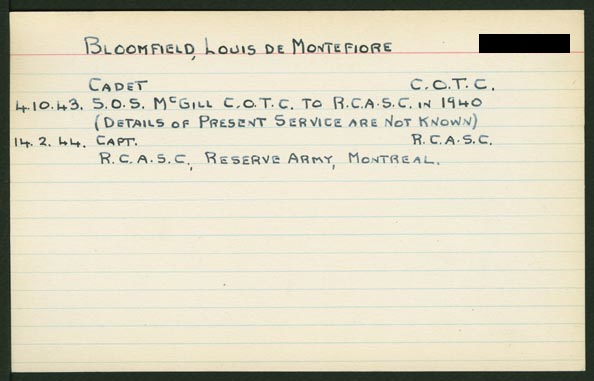 BLOOMFIELD, LOUIS DE MONTEFIORE
CADET C.O.T.C.
4.10.43. S.O.S. McGILL C.O.T.C. TO R.C.A.S.C. IN 1940
(DETAILS OF PRESENT SERVICE ARE NOT KNOWN)
14.2.44. CAPT. R.C.A.S.C.
R.C.A.S.C., RESERVE ARMY, MONTREAL.